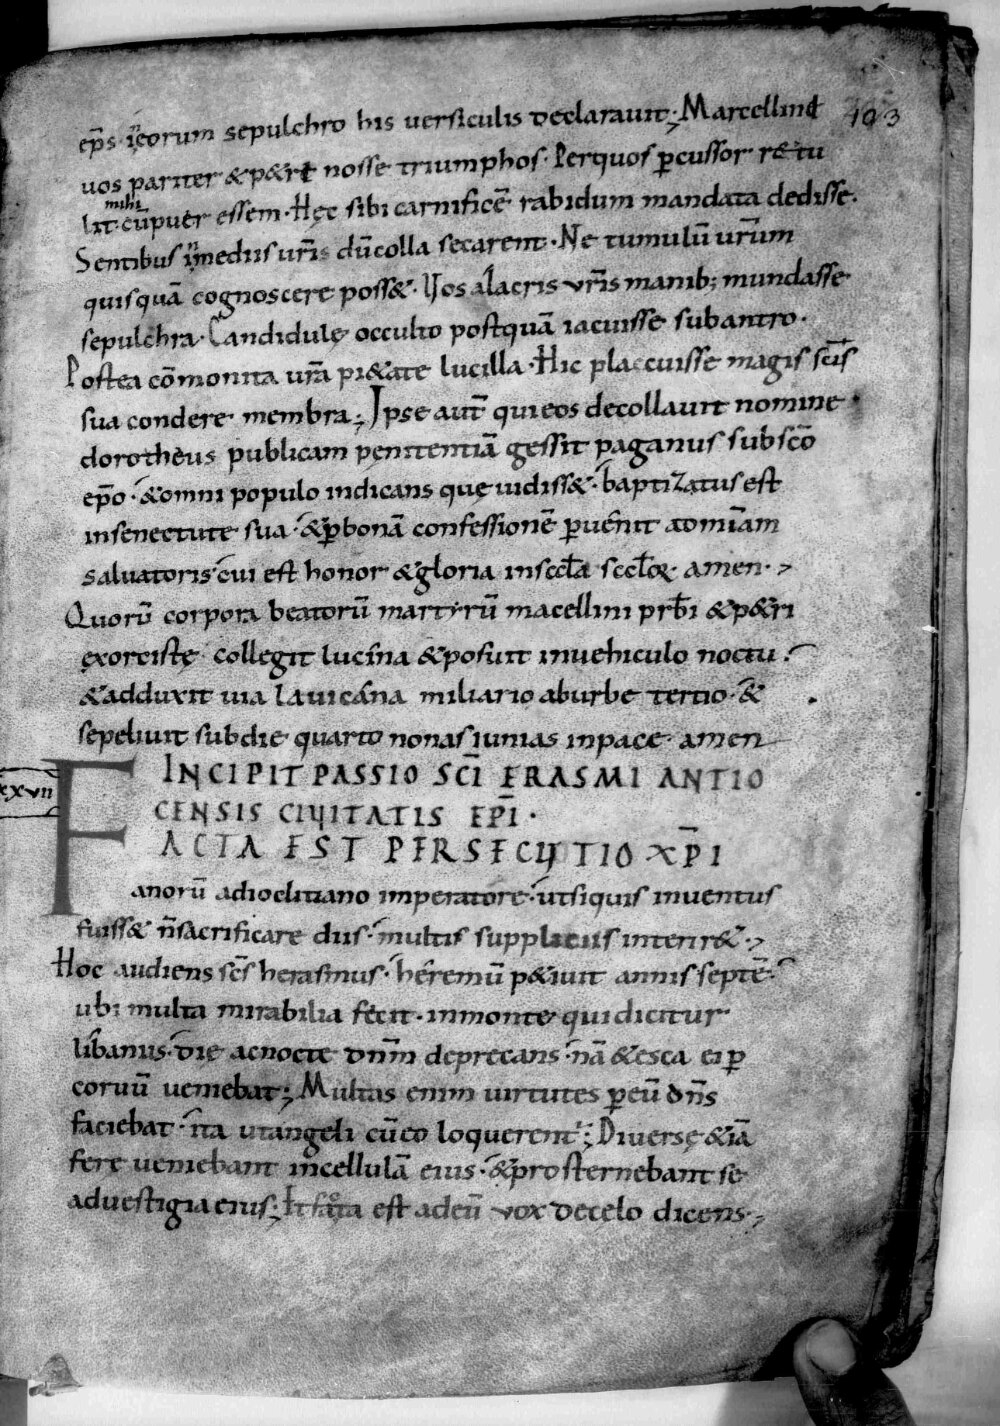 ep̄s· ı̈n eorum sepulchro his uersiculis declarauit·; Marcelline 103
uos pariter & p&re nosse triumphos· Perquos percussor r&tu
mihi
lit· cū puer essem· Hęc sibi carnificē rabidum mandata dedisse·
Sentibus ı̈nmediis ur̄is dū colla secarent· Ne tumulū ur̄um
quisquā cognoscere poss&· Uos alacris ur̄is manib; mundasse
sepulchra· Candidulę occulto postquā iacuisse subantro·
Postea cōmonita ur̄a pi&ate lucilla· Hic placcuisse magis sc̄is
sua condere membra·; Ipse aut̄ qui eos decollauit nomine
dorotheus publicam pęnitentiā gessit paganus sub sc̄o
ep̄o· & omni populo indicans quę uidiss&· baptizatus est
insenectute sua· & ꝑ bonā confessionē ꝑuenit ad om̄iam
saluatoris· cui est honor & gloria insecl̄a secl̄oꝝ· amen·
Quorū corpora beatorū martyrū macellini prb̄i & p&ri
exorcistę collegit lucina & posuit inuehiculo noctu·
& adduxit uia lauicana miliario aburbe tertio· &
sepeliuit subdie quarto nonas iunias inpace· amen
xxvii INCIPIT PASSIO SC̄I ERASMI ANTIO
CENSIS CIUITATIS EP̄I·
FACTA EST PERSECUTIO XP̄I
anorū adioclitiano imperatore· utsiquis inuentus
fuiss& n̄ sacrificare diis· multis suppliciis interir&·
Hoc audiens sc̄s herasmus· heremū p&iuit annis septē·
ubi multa mirabilia fecit· inmonte qui dicitur
libanus· die acnocte dn̄m deprecans· nā & esca ei ꝑ
coruū ueniebat·; Multas enim uirtutes ꝑ eū dn̄s
faciebat· ita utangeli cū eo loquerent̄·; Diuersę & iā
fere ueniebant incellulā eius· & prosternebant se
aduestigia eius·; Et facta est adeū vox decelo dicens·